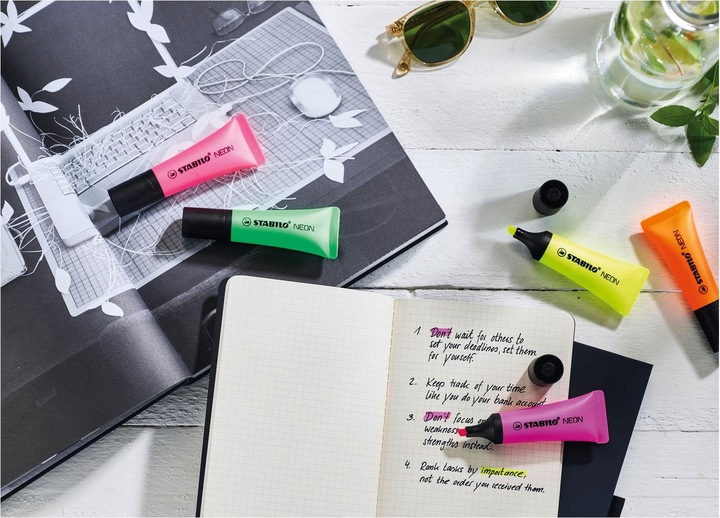 STABILO® NEON
STABILO® NEON
STABILO® NEON
STABILO® NEON
1. Don't wait for others to
set your deadlines, set them
for yourself.
2. Keep track of your time
like you do your bank account
3. Don't focus
weakness
strengths instead.
4. Rank tasks by importance,
not the order you received them.
STABILO® NEON